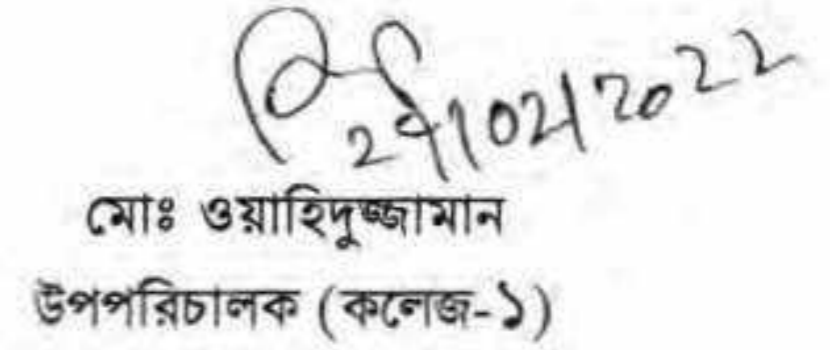 /02/2022
মোঃ ওয়াহিদুজ্জামান
উপপরিচালক (কলেজ-১)